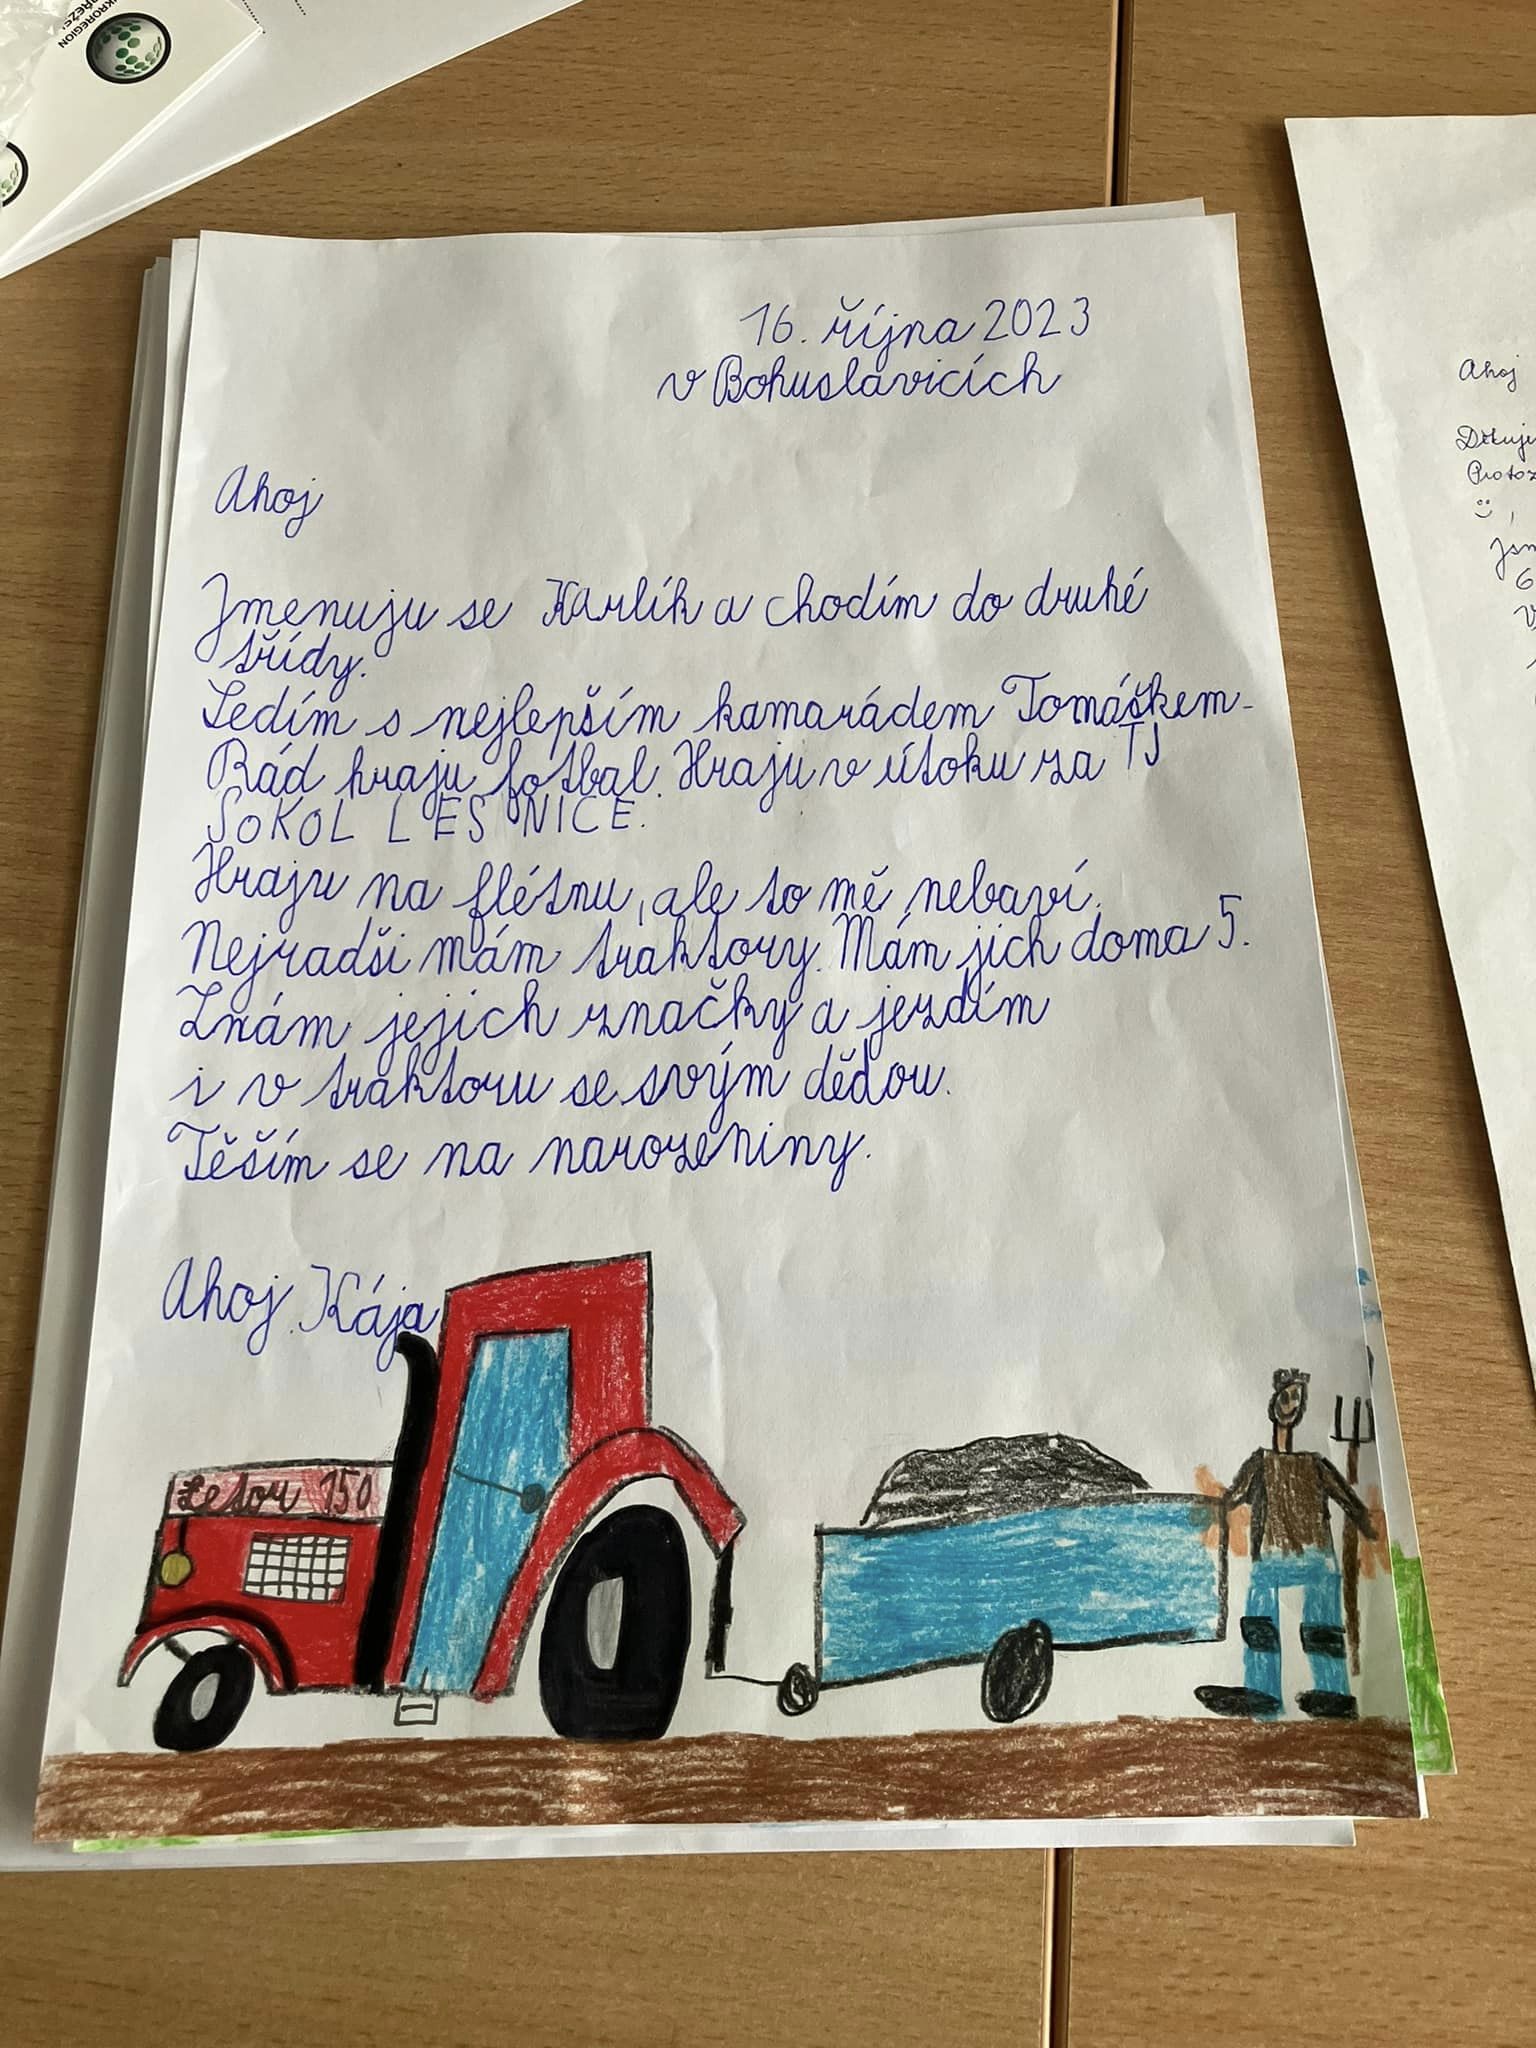 KROREGION
16. října 2023
v Bohuslavicích
Ahoj
Jmenuju se Karlík a chodím do druhé
třídy.
Sedím s nejlepším kamarádem Tomáškem.
Rád hraju fotbal. Hraju v útoku za TJ
SOKOL LESNICE.
Hraju na flétnu, ale to mě nebaví.
Nejradši mám traktory. Mám jich doma 5.
Znám jejich značky a jezdím
i v traktoru se svým dědou.
Těším se na narozeniny.
Ahoj Kája
Zetor 150
Ahoj